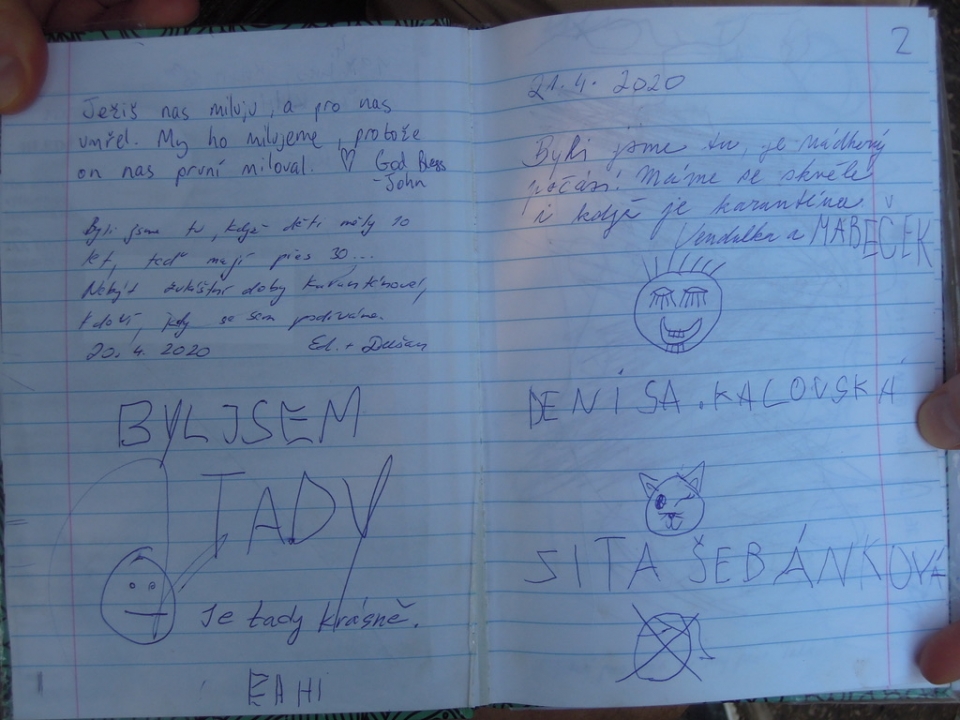 Ježiš nas miluju, a pro nas
umřel. My ho milujeme, protože
on nas první miloval. ♡ God Bless
-John
Byli jsme tu, když děti měly 10
let, teď mají přes 30...
Nebýt zvláštní doby karanténové,
kdoví, kdy se sem podíváme.
20. 4. 2020 Ed. + Dušan
BYL JSEM
TADY
Je tady krásně.
2
21. 4. 2020
Byli jsme tu, je nádherný
počásí! Máme se skvěle
i když je karanténa
Vendulka a MAŘEČEK
DENISA KALOVSKÁ
SITA ŠEBÁNKOVÁ